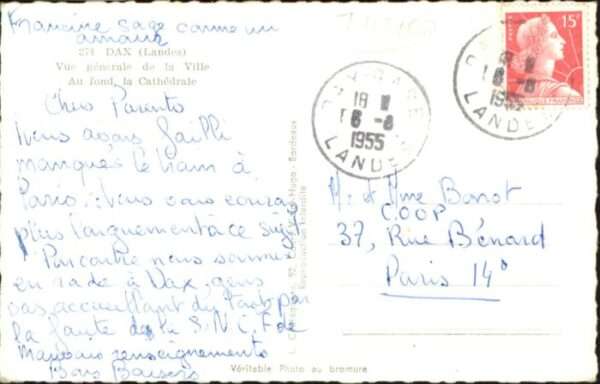 Francine sage comme un
amour
274 DAX (Landes)
Vue générale de la Ville
Au fond, la Cathédrale
Chers Parents
Nous avons failli
manqués le train à
Paris. Nous vous
plus longuement à ce sujet
Par contre nous sommes
en rade à Dax, gens
pas accueillant du tout par
la faute de la S.N.C.F de
Mauvais renseignements
Bons Baisers
15F
DAX-GARE
18 H
6-8
1955
LANDES
DAX-GARE
18 H
6-8
1955
LANDES
M. & Mme Bonot
COOP
37, Rue Bénard
Paris 14°
Victor-Hugo - Bordeaux
Reproduction interdite
Véritable Photo au bromure